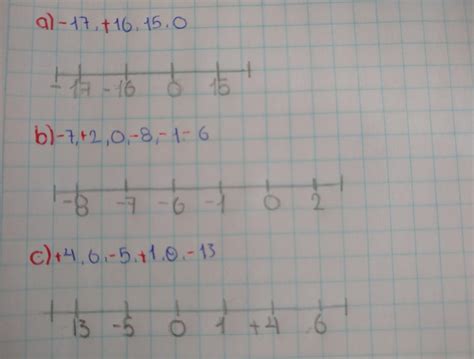 a) -17, +16, 15, 0
-17 -16 0 15
b) -7, +2, 0, -8, -1 - 6
-8 -7 -6 -1 0 2
c) +4, 6, -5, +1, 0, -13
13 -5 0 1 +4 6